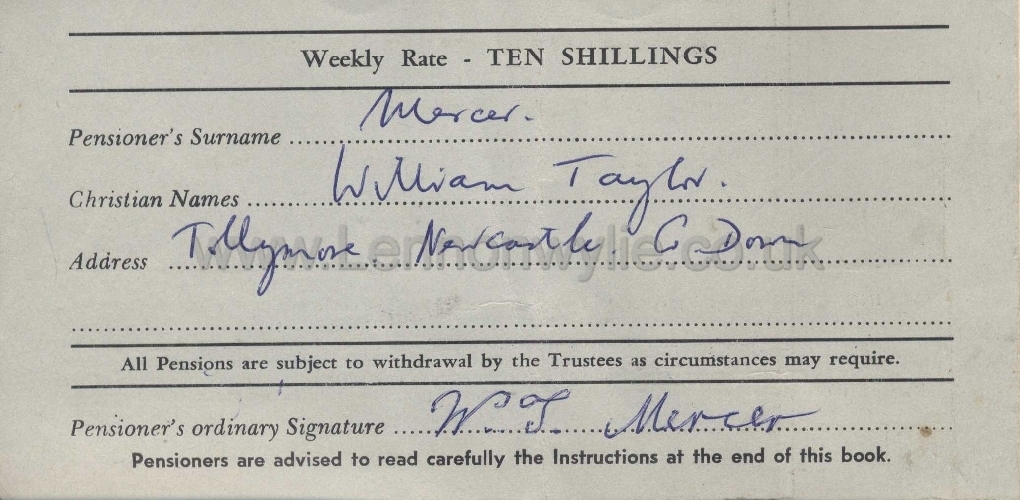 Weekly Rate - TEN SHILLINGS
Pensioner's Surname Mercer.
Christian Names William Taylor.
Address Tollymore Newcastle Co Down
www.Lennonwylie.co.uk
All Pensions are subject to withdrawal by the Trustees as circumstances may require.
Pensioner's ordinary Signature W. T. Mercer
Pensioners are advised to read carefully the Instructions at the end of this book.